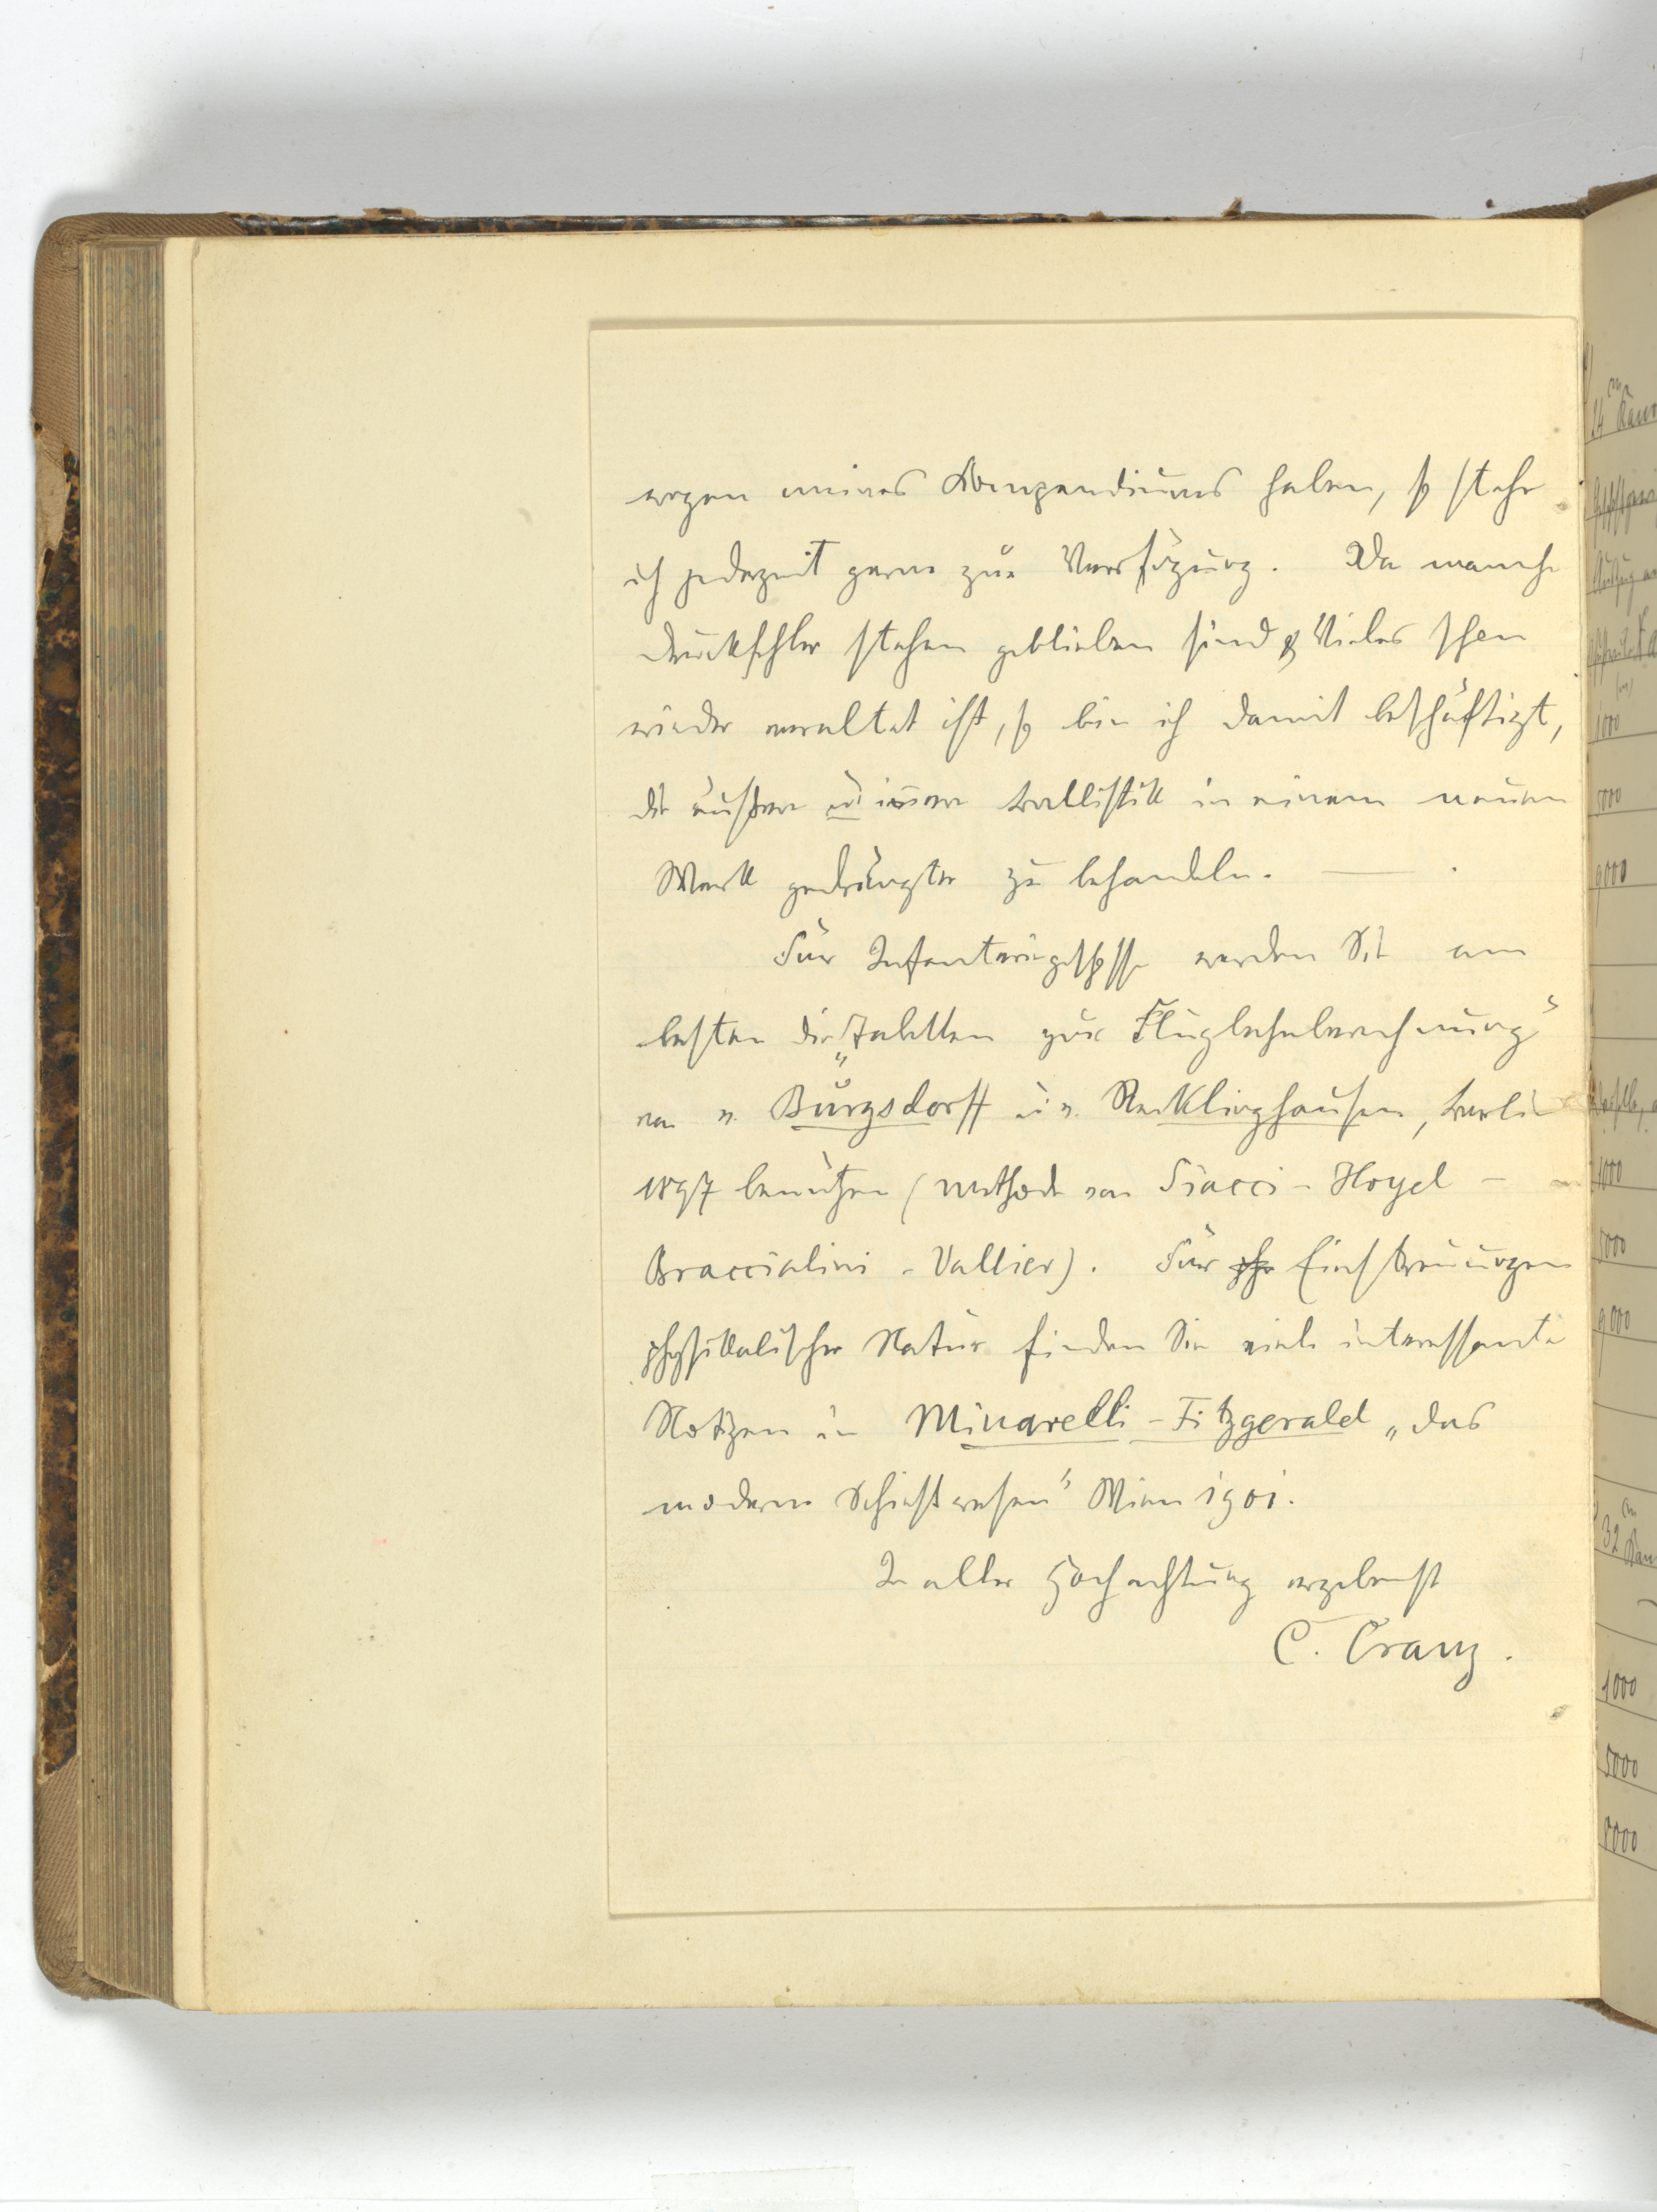 wegen meines Kompendiums haben, so stehe
ich jederzeit gerne zur Verfügung. Da manche
Druckfehler stehen geblieben sind & Vieles schon
wieder veraltet ist, so bin ich damit beschäftigt,
die äußere u. innere Ballistik in einem neuen
Werk gedrängter zu behandeln. —
Für Infanteriegeschosse werden Sie am
besten die „Tabellen zur Flugbahnberechnung"
von v. Burgsdorff u. v. Recklinghausen, Berlin
1897 benützen (Methode von Siacci - Hojel -
Braccialini - Vallier). Für Einstreuungen
physikalischer Natur finden Sie viele interessante
Notizen in Minarelli - Fitzgerald „das
moderne Schießwesen" Wien 1901.
In aller Hochachtung ergebenst
C. Cranz.
14
1000
5000
9000
1000
5000
9000
32
1000
5000
9000